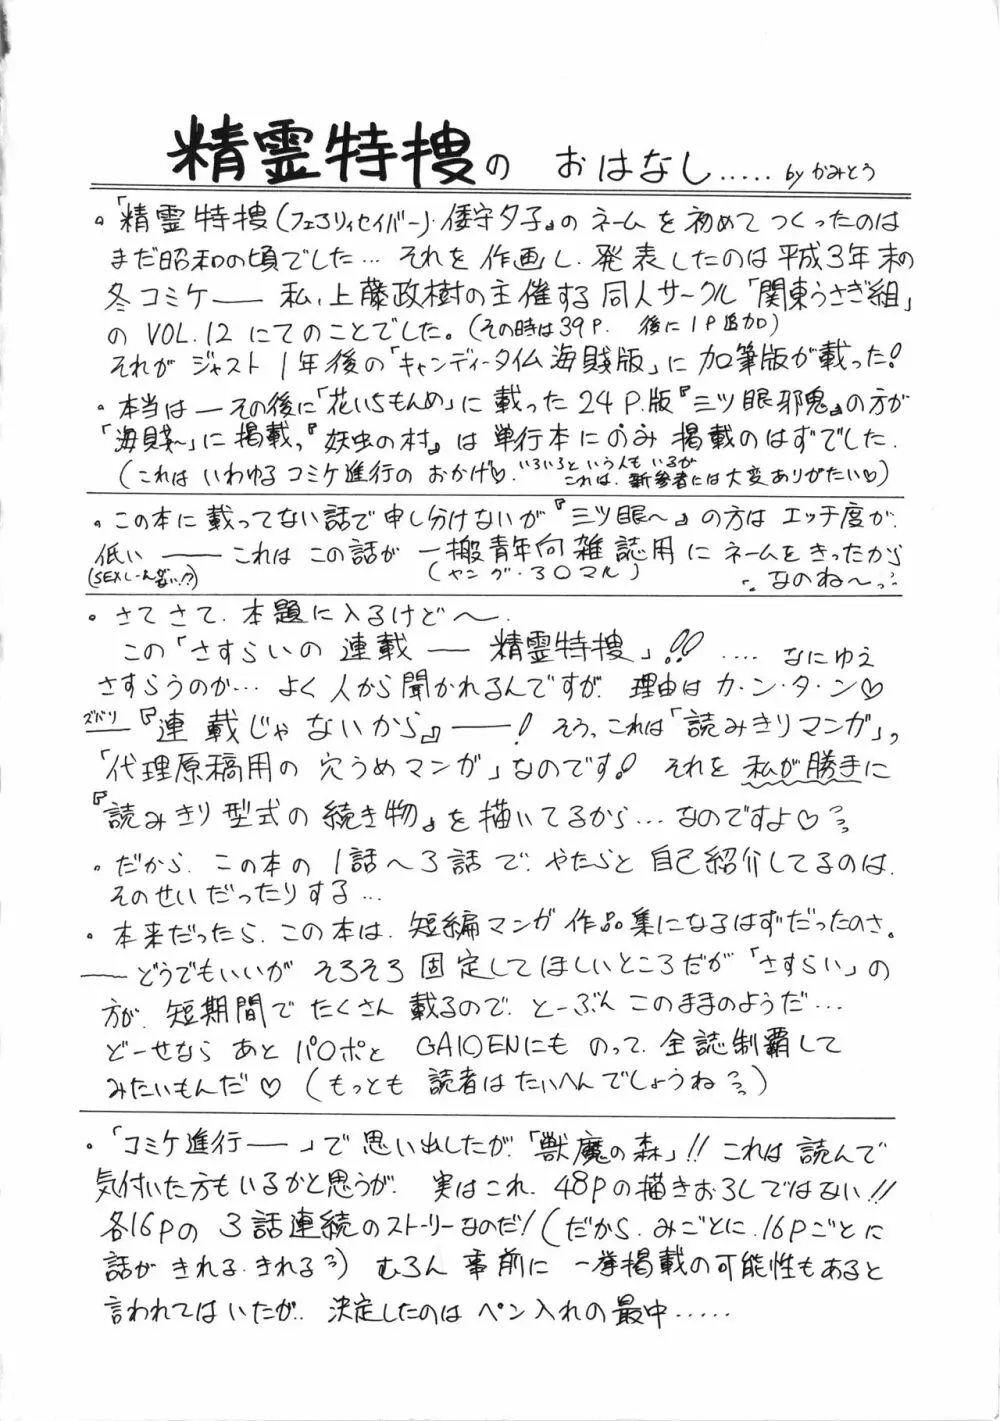 精霊特捜の おはなし..... byかみとう
。「精霊特捜(フェアリィセイバー)・倭守夕子』の ネーム を 初めて つくったのは
まだ昭和の頃でした… それを 作画し、発表したのは平成3年末の
冬コミケ―― 私、上藤政樹の主催する同人サークル「関東うさぎ組」
の VOL.12 にてのことでした。(その時は39P. 後に1P追加)
それが ジャスト 1年後の「キャンディータイム海賊版」に 加筆版が載った!
・本当は―その後に「花いちもんめ」に 載った 24P.版『三ツ眼邪鬼』の方が
「海賊〜」に 掲載、『妖虫の村』は 単行本にのみ 掲載のはずでした.
(これは いわゆる コミケ進行の おかげ♡. いろいろという人も いるが これは、新参者には大変ありがたい♡)
。この本に 載ってない話で 申し分けないが『三ツ眼〜』の方は エッチ度が、
低い ―― これは この話が 一搬青年向雑誌用に ネームをきったから
(SEXしーん ない!?) (ヤング・30マル) なのね〜っ
。さてさて、本題に入るけど〜.
この「さすらいの 連載 ―― 精霊特捜」!! .... なにゆえ
さすらうのか… よく 人から聞かれるんですが、理由は カ・ン・タ・ン♡
ズバリ『連載じゃないから』――! そう、これは「読みきりマンガ」、
「代理原稿用の 穴うめマンガ」なのです! それを 私が勝手に
『読みきり型式の 続き物』を 描いてるから… なのですよ♡
。だから、この本の 1話〜3話 で、やたらと 自己紹介してるのは、
そのせいだったりする…
・本来だったら、この本は、短編マンガ 作品集になるはずだったのさ.
――どうでもいいが そろそろ 固定して ほしいところだが「さすらい」の
方が、短期間で たくさん 載るので、とーぶん このままのようだ…
どーせなら あと パロポと GAIDENにも のって、全誌制覇して
みたいもんだ♡ (もっとも 読者は たいへんでしょうね)
・「コミケ進行――」で 思い出したが、「獣魔の森」!! これは 読んで
気付いた方もいるかと思うが、実はこれ、48pの描きおろしではない!!
各16pの 3話連続のストーリーなのだ!(だから、みごとに、16pごとに
話が きれる、きれる) むろん 事前に 一挙掲載の可能性もあると
言われてはいたが.. 決定したのは ペン入れの 最中.....